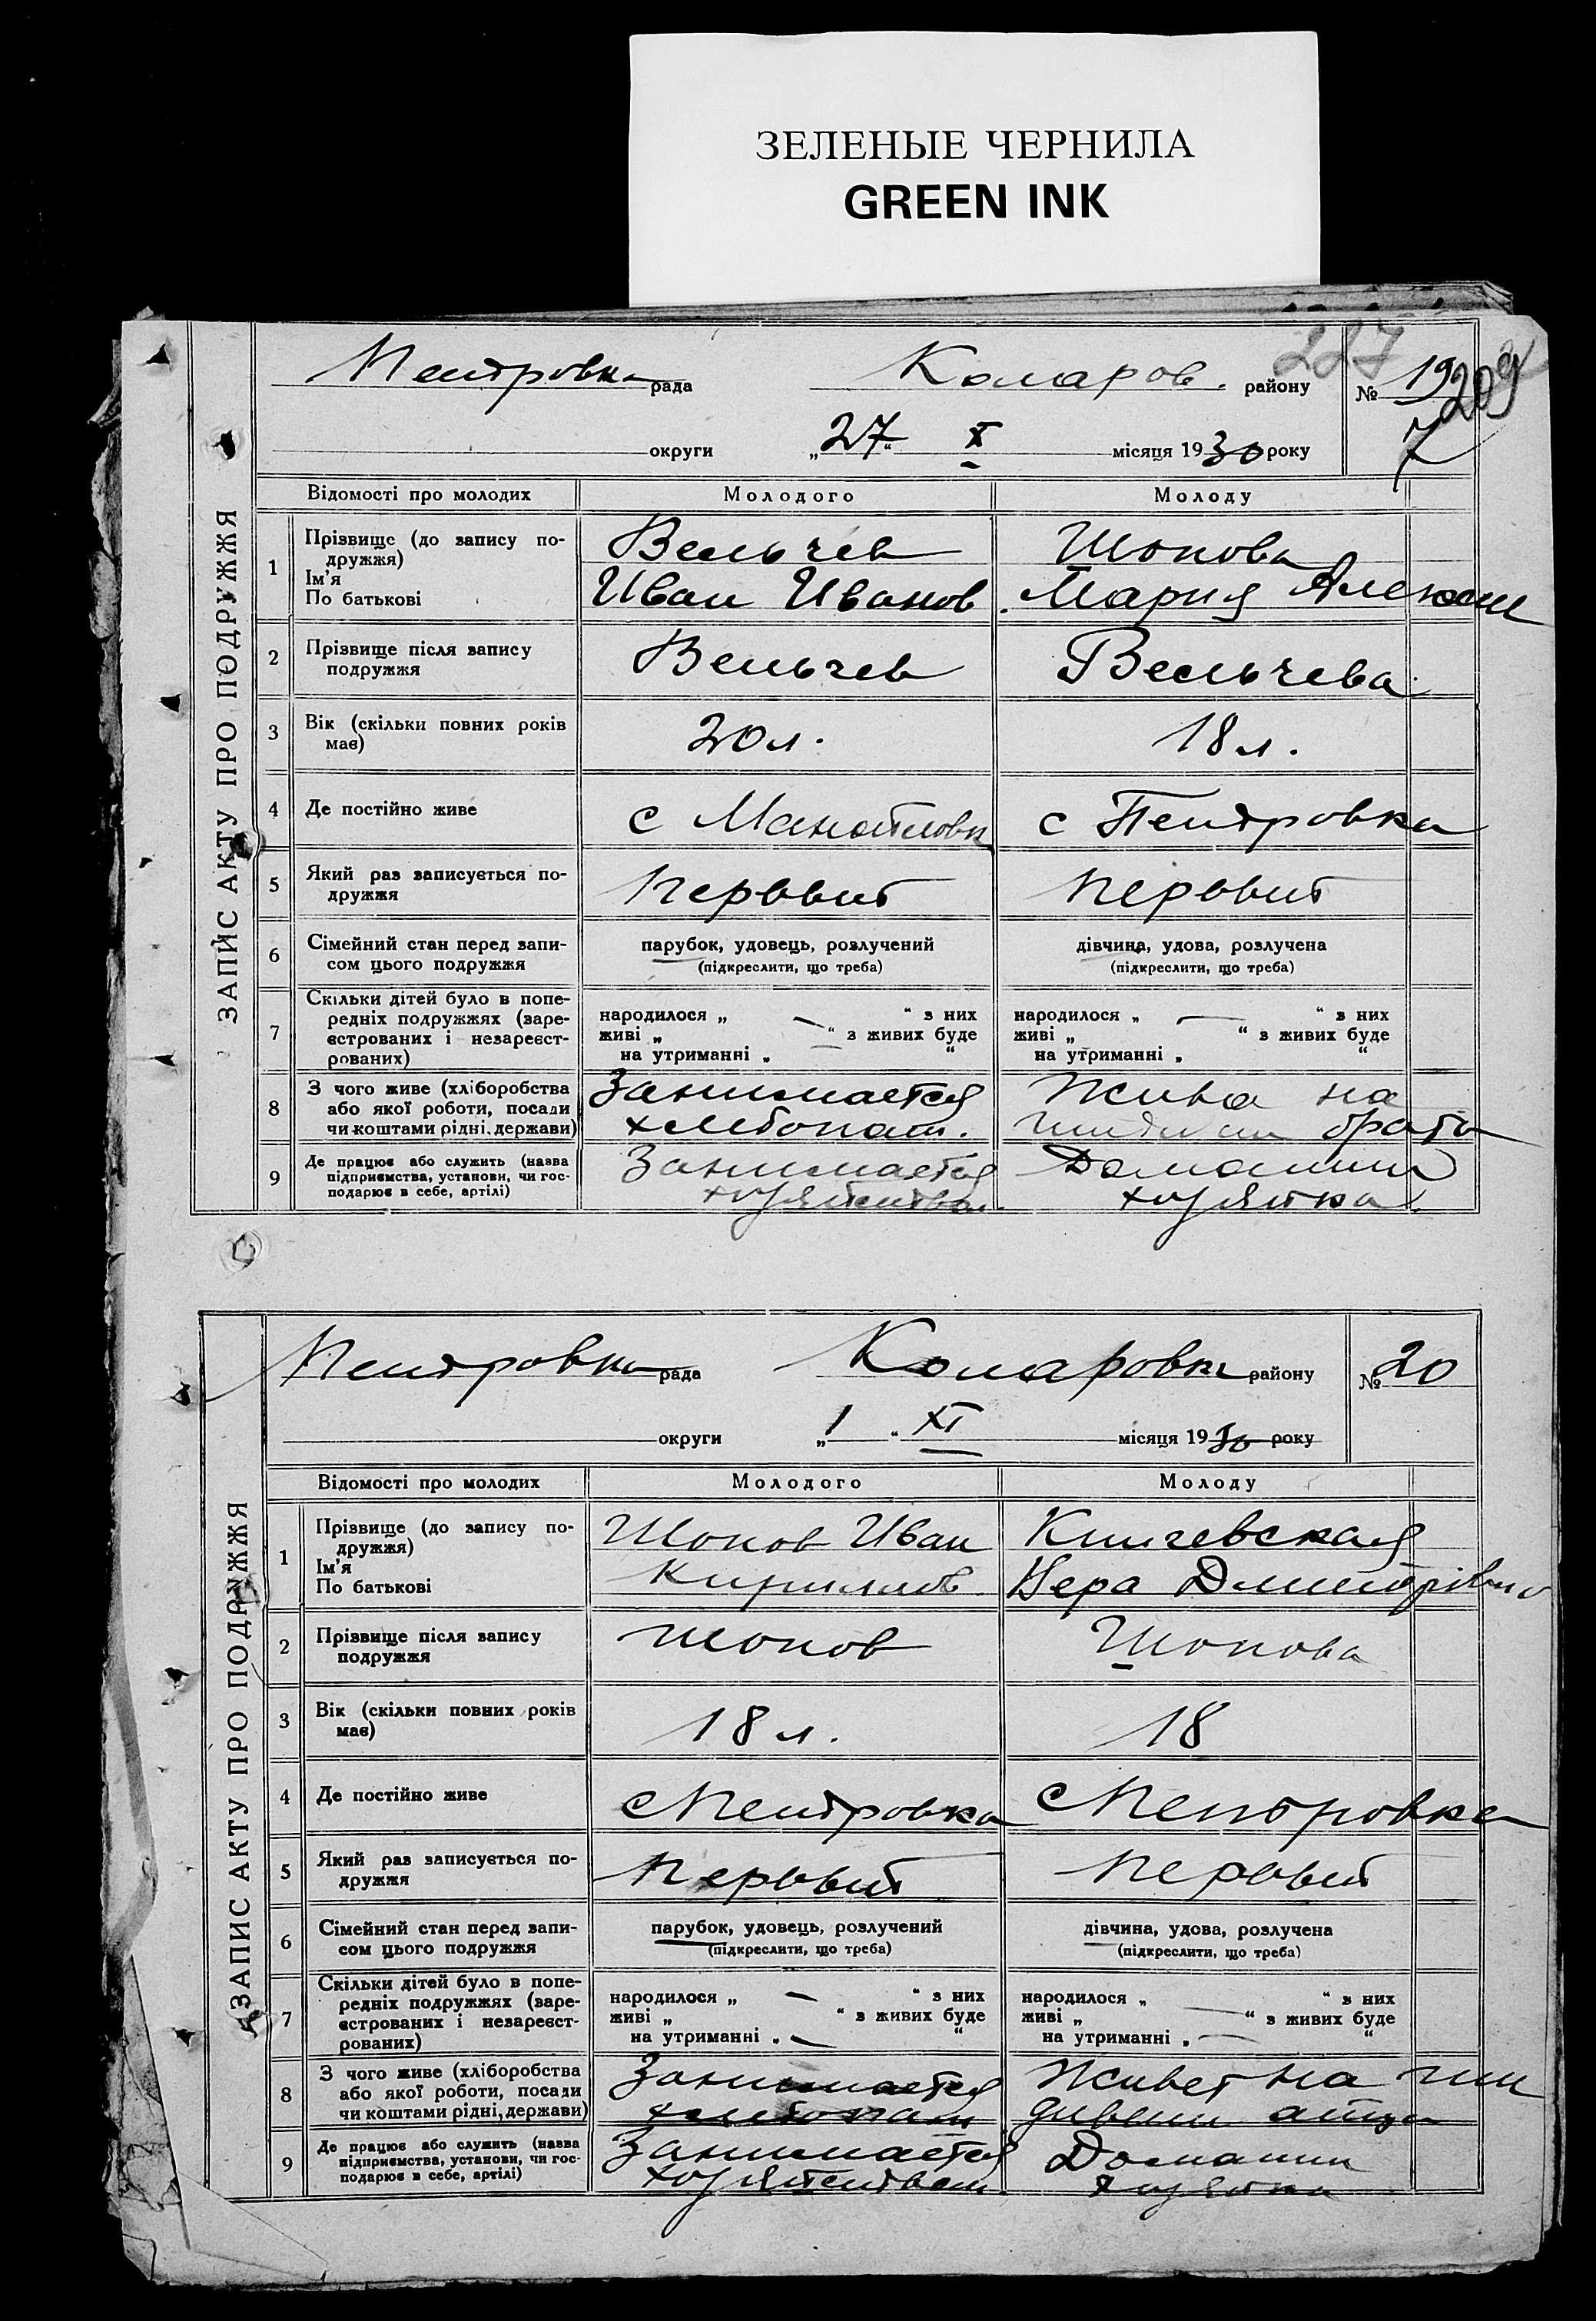 ЗЕЛЕНЫЕ ЧЕРНИЛА
GREEN INK
227
209
ЗАПИС АКТУ ПРО ПОДРУЖЖЯ
Петровка рада Комаров. району № 19
7
округи „27“ X місяця 1930 року
Відомості про молодих Молодого Молоду
1 Прізвище (до запису подружжя) Ім'я По батькові
Вельчев Шопова
Иван Иванов Мария Алексе
2 Прізвище після запису подружжя Вельчев Вельчева
3 Вік (скільки повних років має) 20 л. 18 л.
4 Де постійно живе с с Петровка
5 Який раз записується подружжя Первый Первый
6 Сімейний стан перед записом цього подружжя парубок, удовець, розлучений дівчина, удова, розлучена
(підкреслити, що треба) (підкреслити, що треба)
7 Скільки дітей було в попередніх подружжях (зареєстрованих і незареєстрованих)
народилося „ — “ з них народилося „ — “ з них
живі „ — “ з живих буде живі „ “ з живих буде
на утриманні „ “ на утриманні „ “
8 З чого живе (хліборобства або якої роботи, посади чи коштами рідні, держави)
Занимается Жива на
хлебопаш. брата
9 Де працює або служить (назва підприємства, установи, чи господарює в себе, артілі)
Занимается Домашн
хозяйством хозяйка
ЗАПИС АКТУ ПРО ПОДРУЖЖЯ
Петровка рада Комаровка району № 20
округи „1“ XI місяця 1930 року
Відомості про молодих Молодого Молоду
1 Прізвище (до запису подружжя) Ім'я По батькові
Шопов Иван
Кириллов Вера Дмитрівна
2 Прізвище після запису подружжя Шопов Шопова
3 Вік (скільки повних років має) 18 л. 18
4 Де постійно живе с Петровка с Петровка
5 Який раз записується подружжя Первый Первый
6 Сімейний стан перед записом цього подружжя парубок, удовець, розлучений дівчина, удова, розлучена
(підкреслити, що треба) (підкреслити, що треба)
7 Скільки дітей було в попередніх подружжях (зареєстрованих і незареєстрованих)
народилося „ — “ з них народилося „ “ з них
живі „ “ з живих буде живі „ — “ з живих буде
на утриманні „ — “ на утриманні „ — “
8 З чого живе (хліборобства або якої роботи, посади чи коштами рідні, держави)
Занимается Живет на
хлебопаш отца
9 Де працює або служить (назва підприємства, установи, чи господарює в себе, артілі)
Занимается Домашн
хозяйством хозяйка